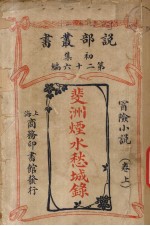 說部叢書
初集
第二十六編
冒險小說
(卷上)
斐洲煙水愁城錄
上海
商務印書館發行